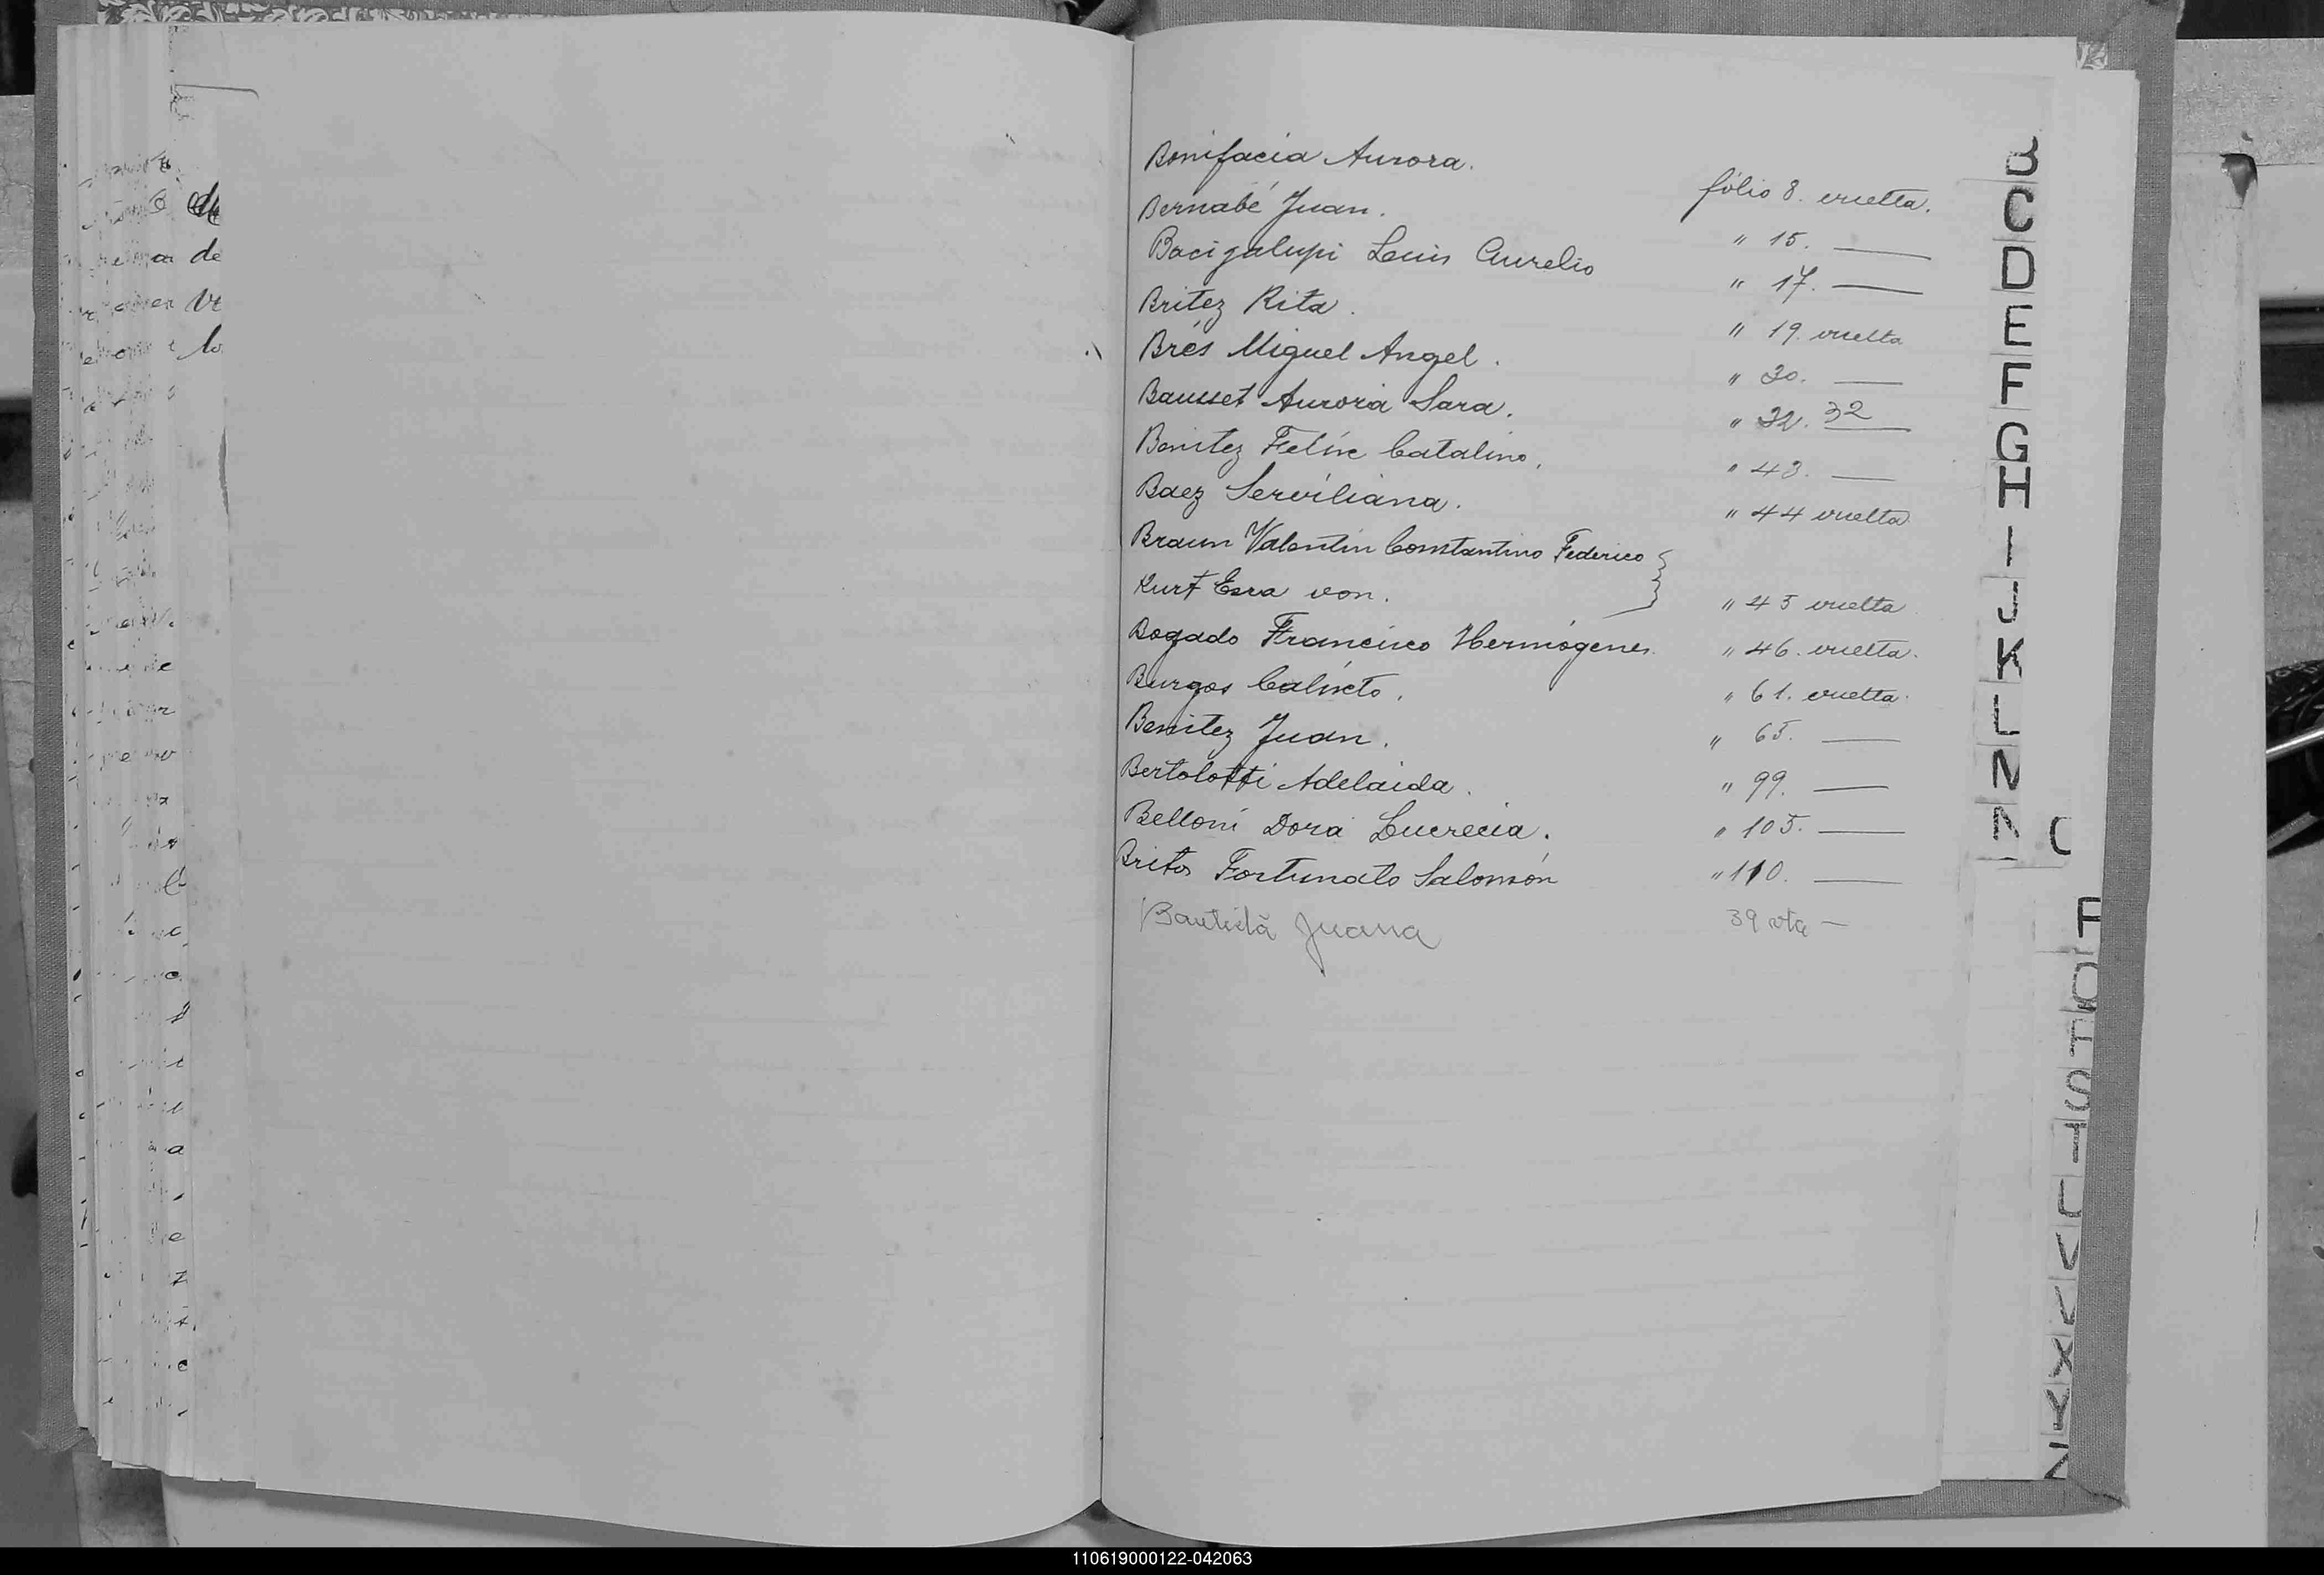 Bonifacia Aurora. fólio 8. vuelta.
Bernabé Juan. " 15. —
Bacigalupi Luis Aurelio " 17. —
Britez Rita. " 19. vuelta
Brés Miguel Angel. " 30. —
Bausset Aurora Sara. " 32. 32
Benitez Felix Catalino. " 43. —
Baez Serviliana. " 44 vuelta
Braun Valentin Constantino Federico }
Kurt Esra von. " 45 vuelta
Bogado Francisco Hermógenes. " 46. vuelta.
Burgos Calixto. " 61. vuelta.
Benitez Juan. " 65. —
Bertolotti Adelaida. " 99. —
Belloni Dora Lucrecia. " 105. —
Britos Fortunato Salomón " 110. —
Bautista Juana 39 vta —
B
C
D
E
F
G
H
I
J
K
L
N
S
V
X
Y
Z
de
110619000122-042063